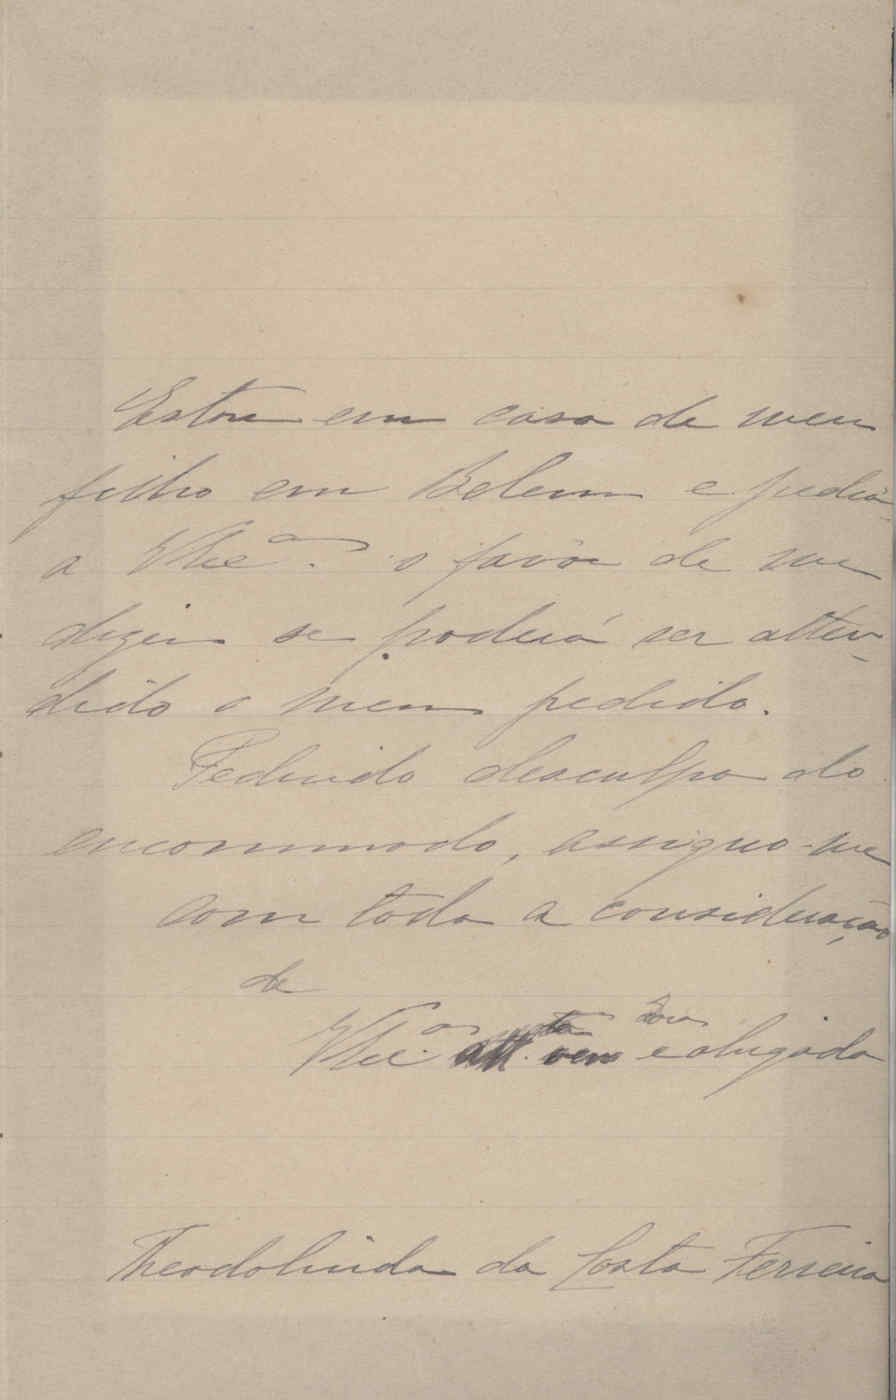 Estou em casa de meu
filho em Belem e pedia
a Vhcê.ª o favôr de me
dizer se poderá ser atten-
dido o meu pedido.
Pedindo desculpa do
encommodo, assigno-me
com toda a consideração
de
att.ta ven.dora e obrigada
Theodolinda da Costa Ferreira